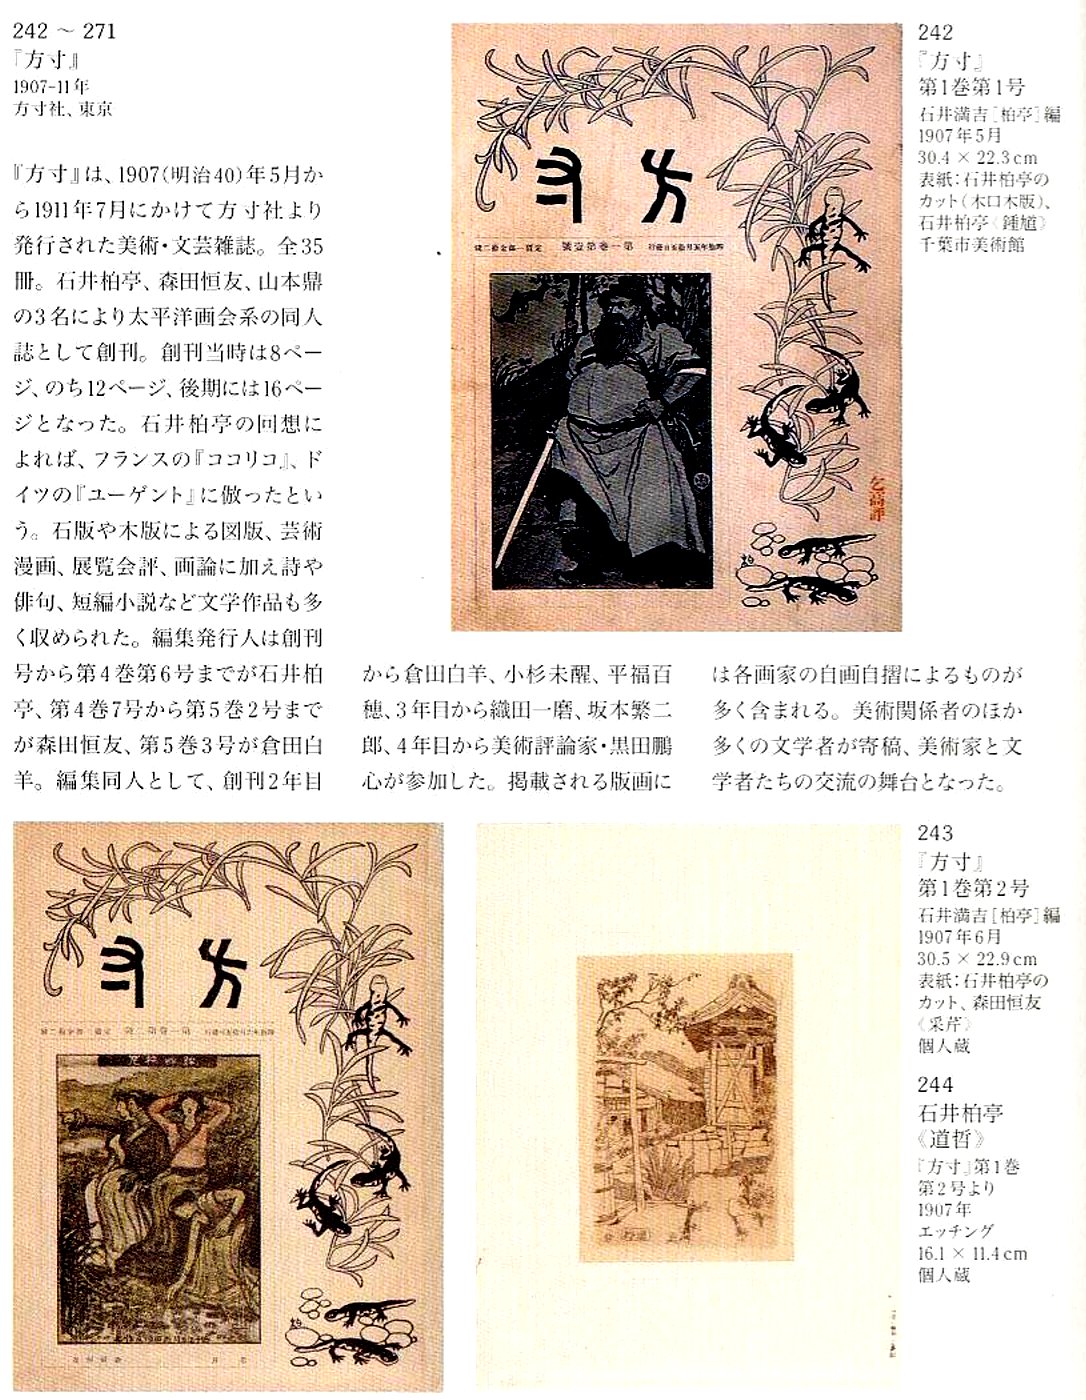 242 ～ 271
『方寸』
1907-11年
方寸社、東京
『方寸』は、1907(明治40)年5月か
ら1911年7月にかけて方寸社より
発行された美術・文芸雑誌。全35
冊。石井柏亭、森田恒友、山本鼎
の3名により太平洋画会系の同人
誌として創刊。創刊当時は8ペー
ジ、のち12ページ、後期には16ペー
ジとなった。石井柏亭の回想に
よれば、フランスの『ココリコ』、ド
イツの『ユーゲント』に倣ったとい
う。石版や木版による図版、芸術
漫画、展覧会評、画論に加え詩や
俳句、短編小説など文学作品も多
く収められた。編集発行人は創刊
号から第4巻第6号までが石井柏
亭、第4巻7号から第5巻2号まで
が森田恒友、第5巻3号が倉田白
羊。編集同人として、創刊2年目
から倉田白羊、小杉未醒、平福百
穂、3年目から織田一磨、坂本繁二
郎、4年目から美術評論家・黒田鵬
心が参加した。掲載される版画に
は各画家の自画自摺によるものが
多く含まれる。美術関係者のほか
多くの文学者が寄稿、美術家と文
学者たちの交流の舞台となった。
242
『方寸』
第1巻第1号
石井満吉［柏亭］編
1907年5月
30.4 × 22.3cm
表紙：石井柏亭の
カット（木口木版）、
石井柏亭《鍾馗》
千葉市美術館
寸方
號壹第卷一第
乞高評
243
『方寸』
第1巻第2号
石井満吉［柏亭］編
1907年6月
30.5 × 22.9cm
表紙：石井柏亭の
カット、森田恒友
《采芹》
個人蔵
寸方
244
石井柏亭
《道哲》
『方寸』第1巻
第2号より
1907年
エッチング
16.1 × 11.4cm
個人蔵